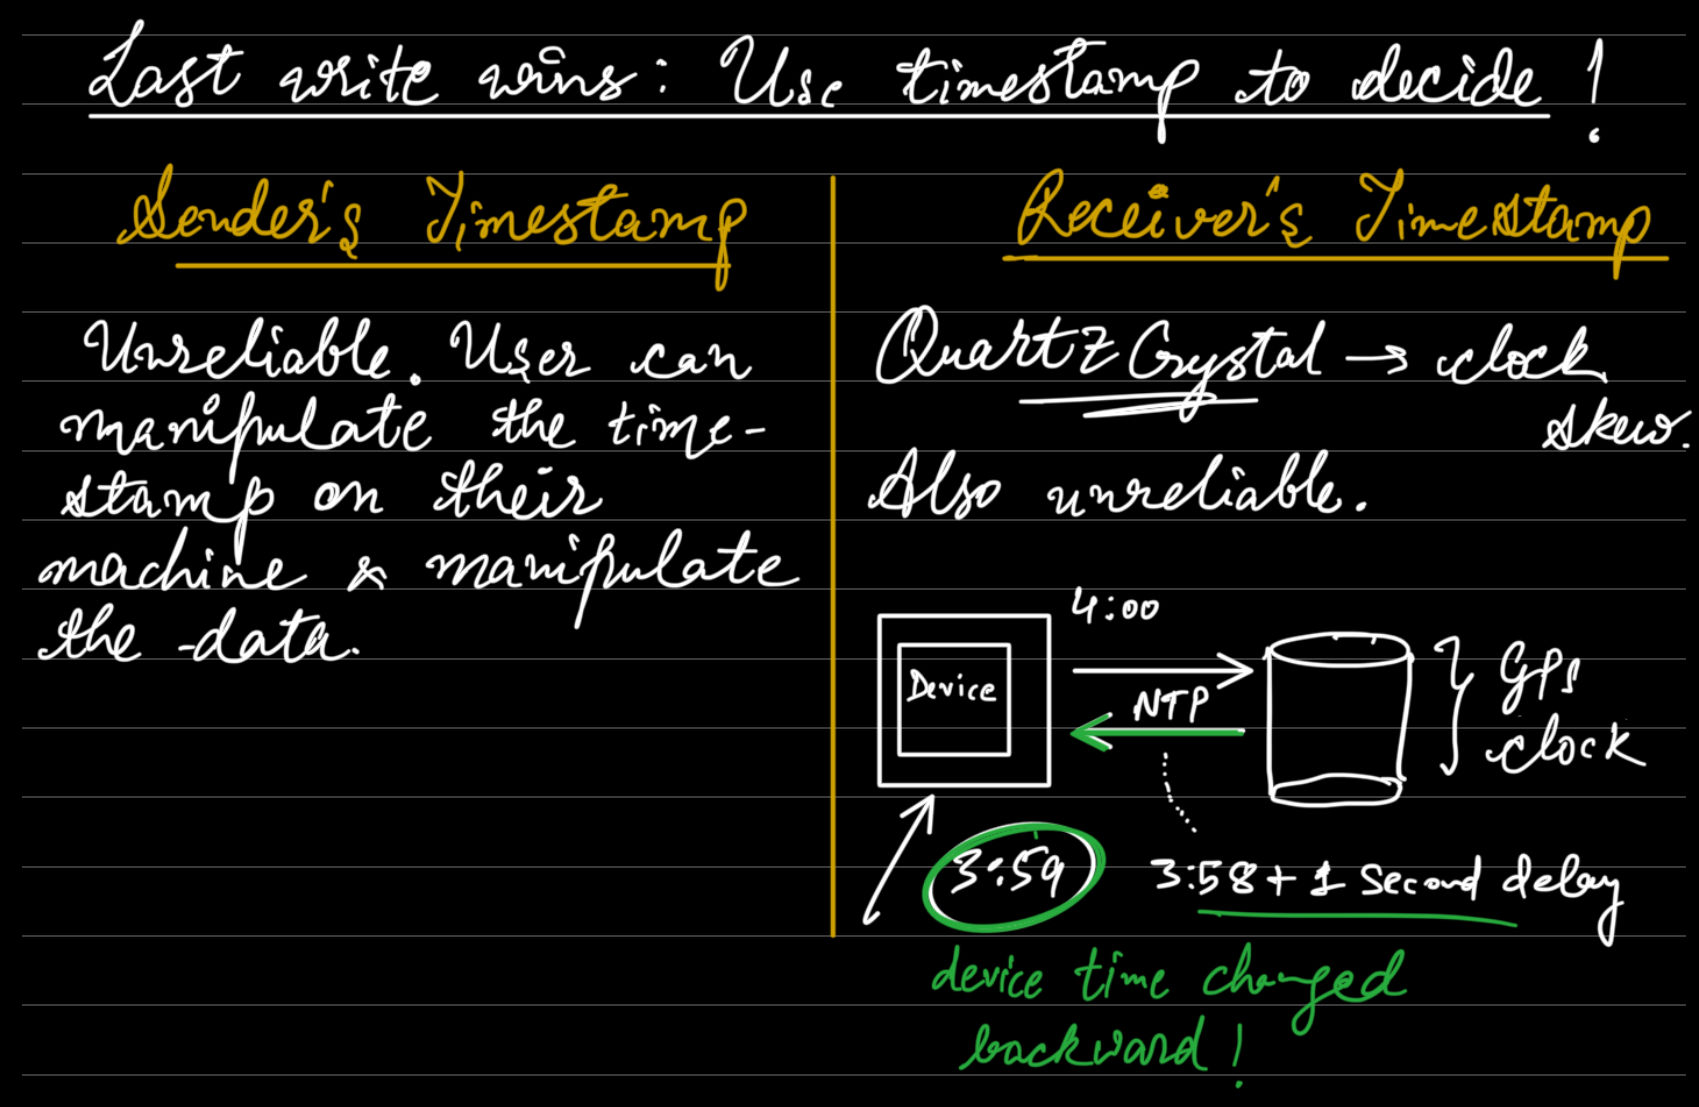 Last write wins: Use timestamp to decide!
Sender's Timestamp
Unreliable. User can
manipulate the time-
stamp on their
machine & manipulate
the data.
Receiver's Timestamp
Quartz Crystal → clock
skew.
Also unreliable.
4:00
Device
NTP
GPS
clock
3:59
3:58 + 1 second delay
device time changed
backward!